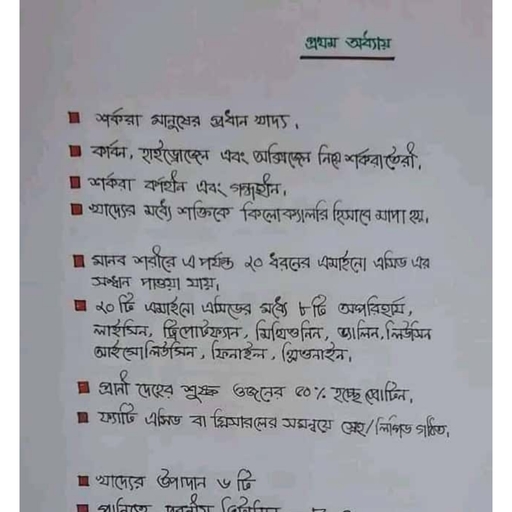 প্রথম অধ্যায়
শর্করা মানুষের প্রধান খাদ্য।
কার্বন, হাইড্রোজেন এবং অক্সিজেন নিয়ে শর্করা তৈরী।
শর্করা বর্ণহীন এবং গন্ধহীন।
খাদ্যের মধ্যে শক্তিকে কিলোক্যালরি হিসাবে মাপা হয়।
মানব শরীরে এ পর্যন্ত ২০ ধরনের এমাইনো এসিড এর
সন্ধান পাওয়া যায়।
২০ টি এমাইনো এসিডের মধ্যে ৮ টি অপরিহার্য,
লাইসিন, ট্রিপোটফ্যান, মিথিওনিন, ভ্যালিন, লিউসিন
আইসোলিউসিন, ফিনাইল, থ্রিওনাইন।
প্রানী দেহের শুষ্ক ওজনের ৫০% হচ্ছে প্রোটিন।
ফ্যাটি এসিড বা গ্লিসারলের সমন্বয়ে স্নেহ/লিপিড গঠিত।
খাদ্যের উপাদান ৬ টি